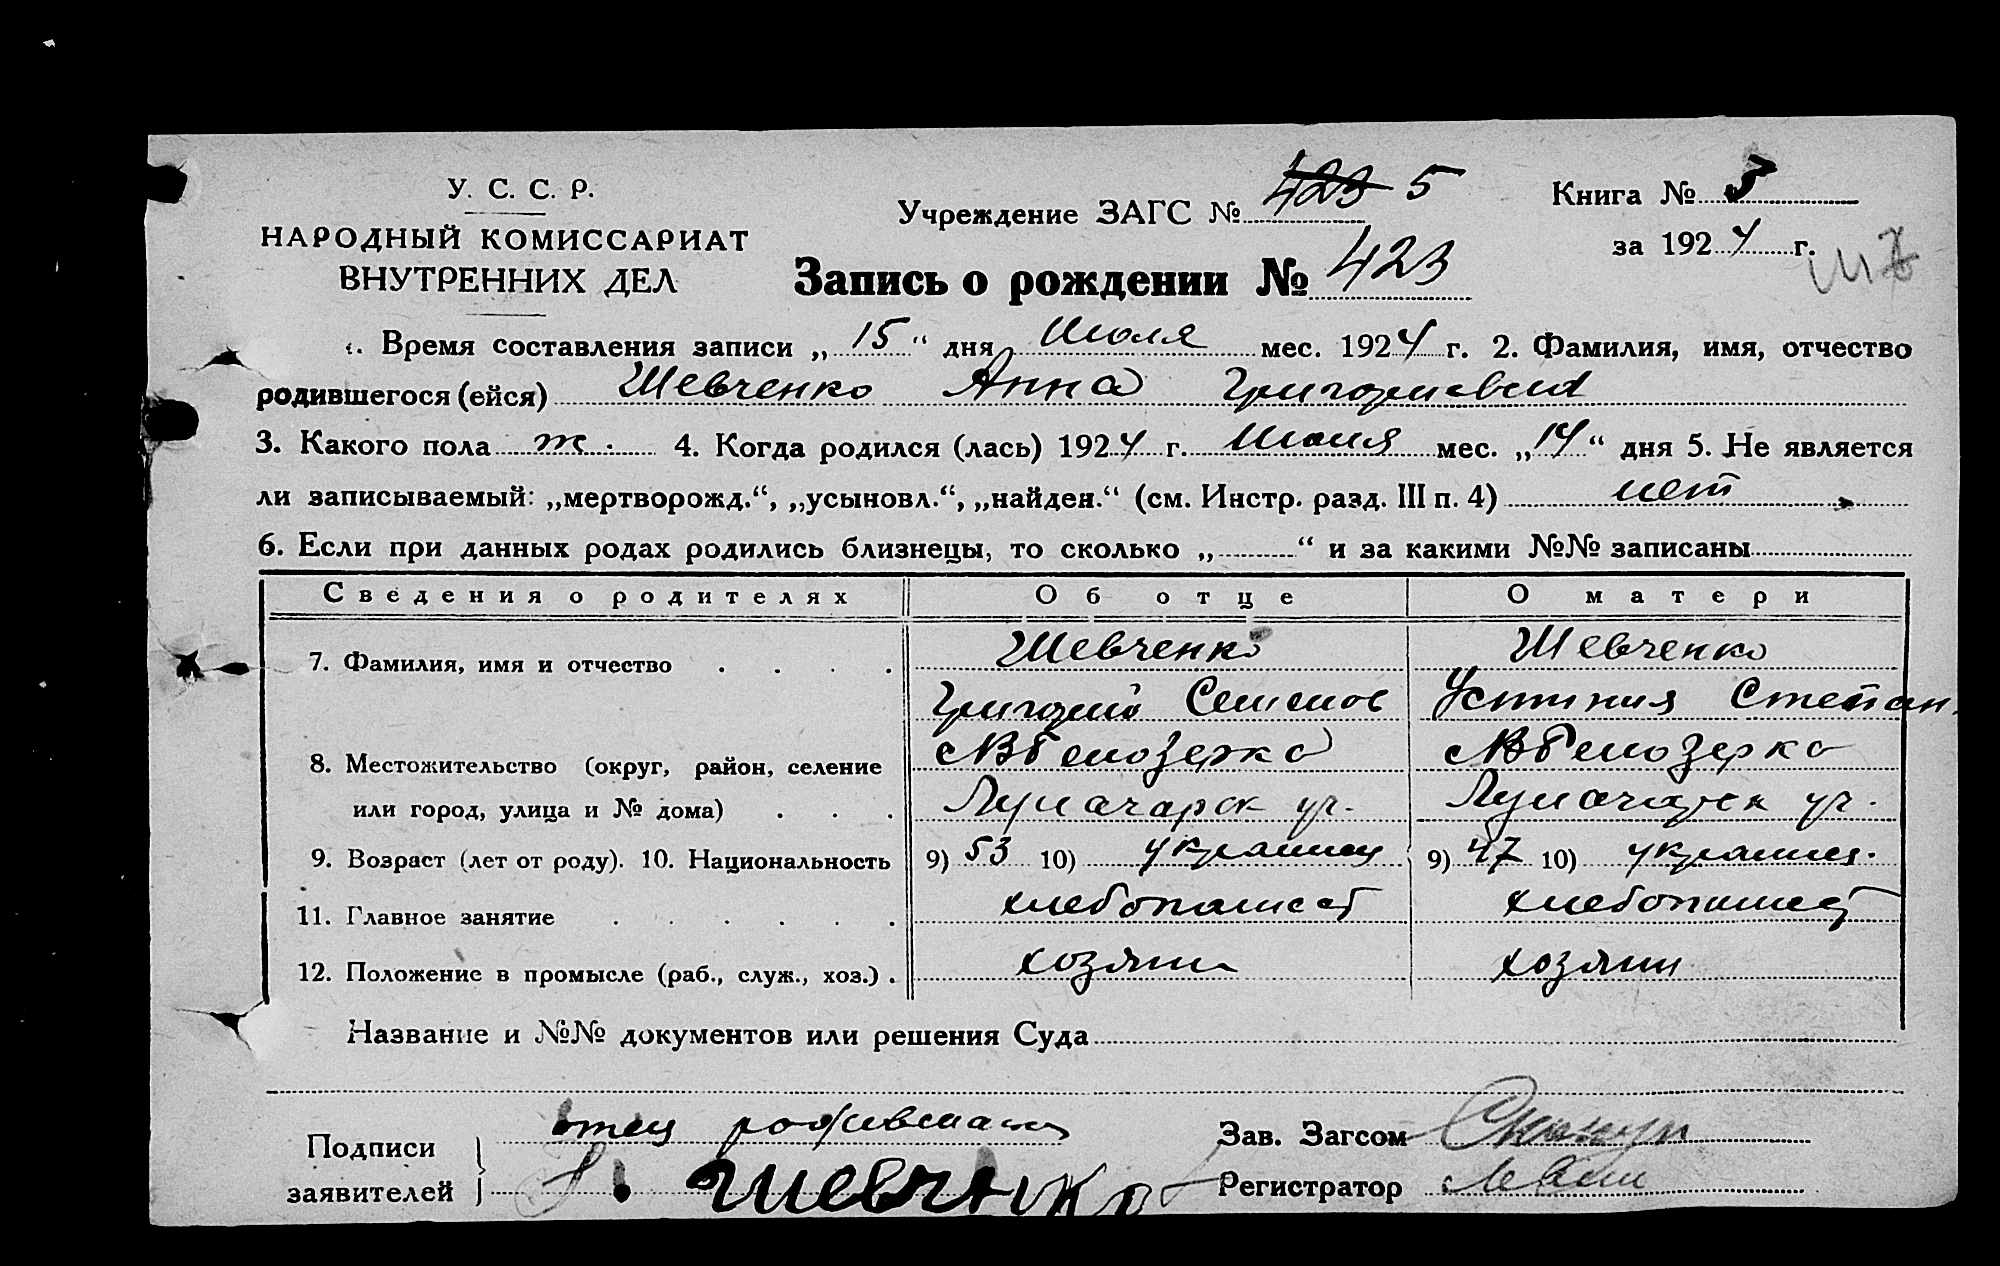 У. С. С. Р.
НАРОДНЫЙ КОМИССАРИАТ
ВНУТРЕННИХ ДЕЛ
Учреждение ЗАГС № 423 5
Книга № 5
за 1924 г.
Запись о рождении № 423
1. Время составления записи „ 15 “ дня Июля мес. 1924 г. 2. Фамилия, имя, отчество
родившегося (ейся) Шевченко Анна Григорьевна
3. Какого пола ж. 4. Когда родился (лась) 1924 г. Июля мес. „14“ дня 5. Не является
ли записываемый: „мертворожд.“, „усыновл.“, „найден.“ (см. Инстр. разд. III п. 4) нет
6. Если при данных родах родились близнецы, то сколько „ “ и за какими №№ записаны
Сведения о родителях Об отце О матери
7. Фамилия, имя и отчество Шевченко Шевченко
Григорий Семенов Устиния Степан.
8. Местожительство (округ, район, селение Белозерка Белозерка
или город, улица и № дома) Луначарск ул. Луначарск ул.
9. Возраст (лет от роду). 10. Национальность 9) 53 10) украинец 9) 47 10) украин.
11. Главное занятие хлебопашест хлебопашест
12. Положение в промысле (раб., служ., хоз.) хозяин хозяин
Название и №№ документов или решения Суда
Подписи
заявителей
отец
Шевченко
Зав. Загсом
Регистратор